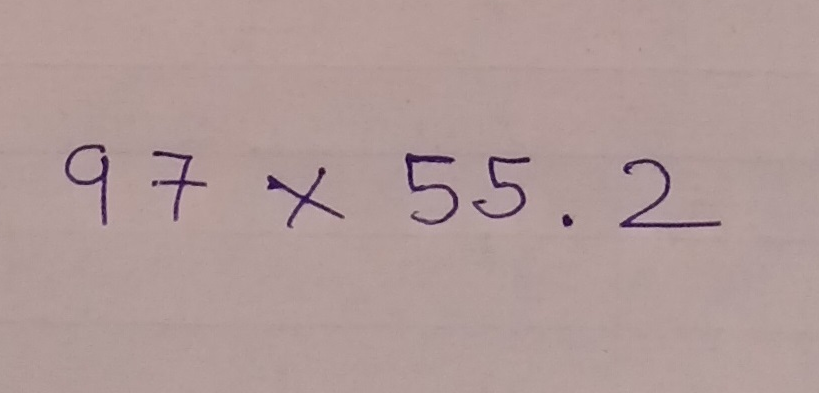 97 × 55.2